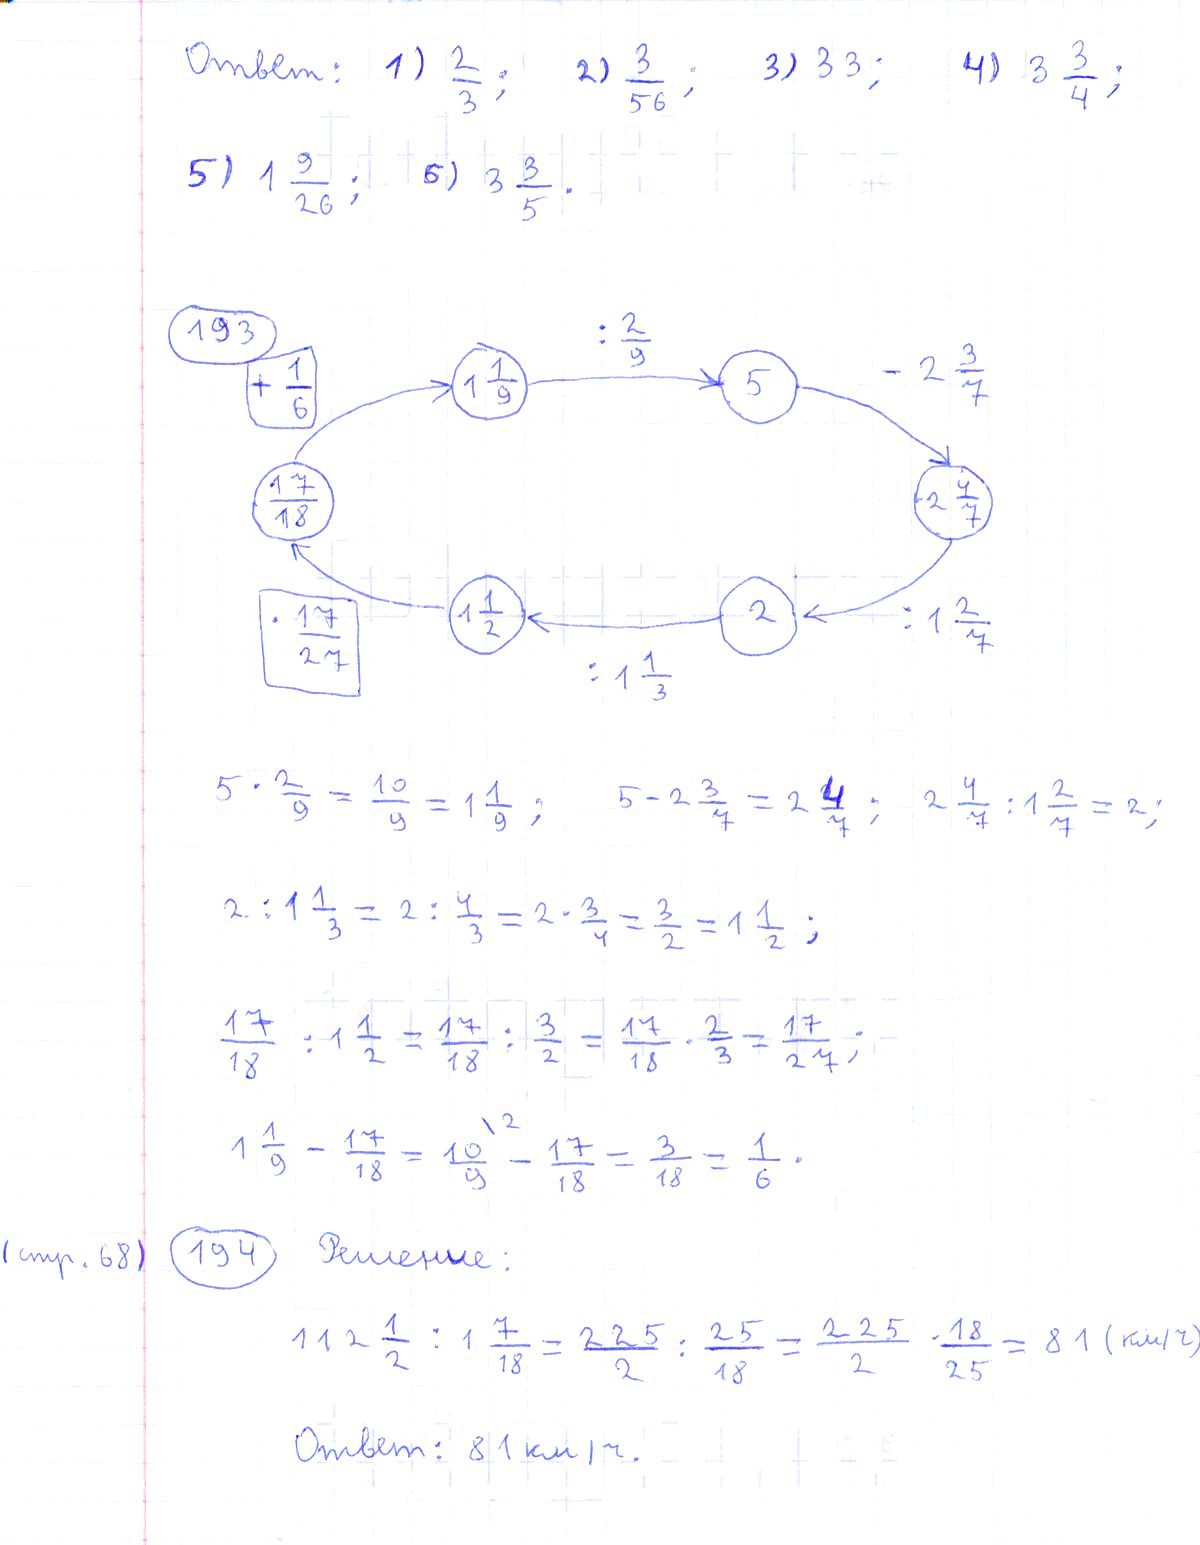 Ответ: 1) 2/3; 2) 3/56; 3) 33; 4) 3 3/4;
5) 1 9/26; 6) 3 3/5.
193
+ 1/6
1 1/9
: 2/9
5
- 2 3/7
17/18
2 4/7
· 17/27
1 1/2
: 1 1/3
2
: 1 2/7
5 · 2/9 = 10/9 = 1 1/9; 5 - 2 3/7 = 2 4/7; 2 4/7 : 1 2/7 = 2;
2 : 1 1/3 = 2 : 4/3 = 2 · 3/4 = 3/2 = 1 1/2;
17/18 : 1 1/2 = 17/18 : 3/2 = 17/18 · 2/3 = 17/27;
1 1/9 - 17/18 = 10/9 \2 - 17/18 = 3/18 = 1/6.
(стр. 68) 194 Решение:
112 1/2 : 1 7/18 = 225/2 : 25/18 = 225/2 · 18/25 = 81 (км/ч)
Ответ: 81 км/ч.